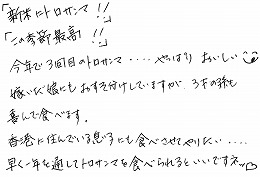 「新米にトロサンマ!!」
「この季節最高!!」
今年で3回目のトロサンマ‥‥やっぱりおいしい
嫁いだ娘にもおすそ分けしていますが、3才の孫も
喜んで食べます。
香港に住んでいる息子にも食べさせてやりたい‥‥
早く一年を通してトロサンマを食べられるといいですネ〜♡